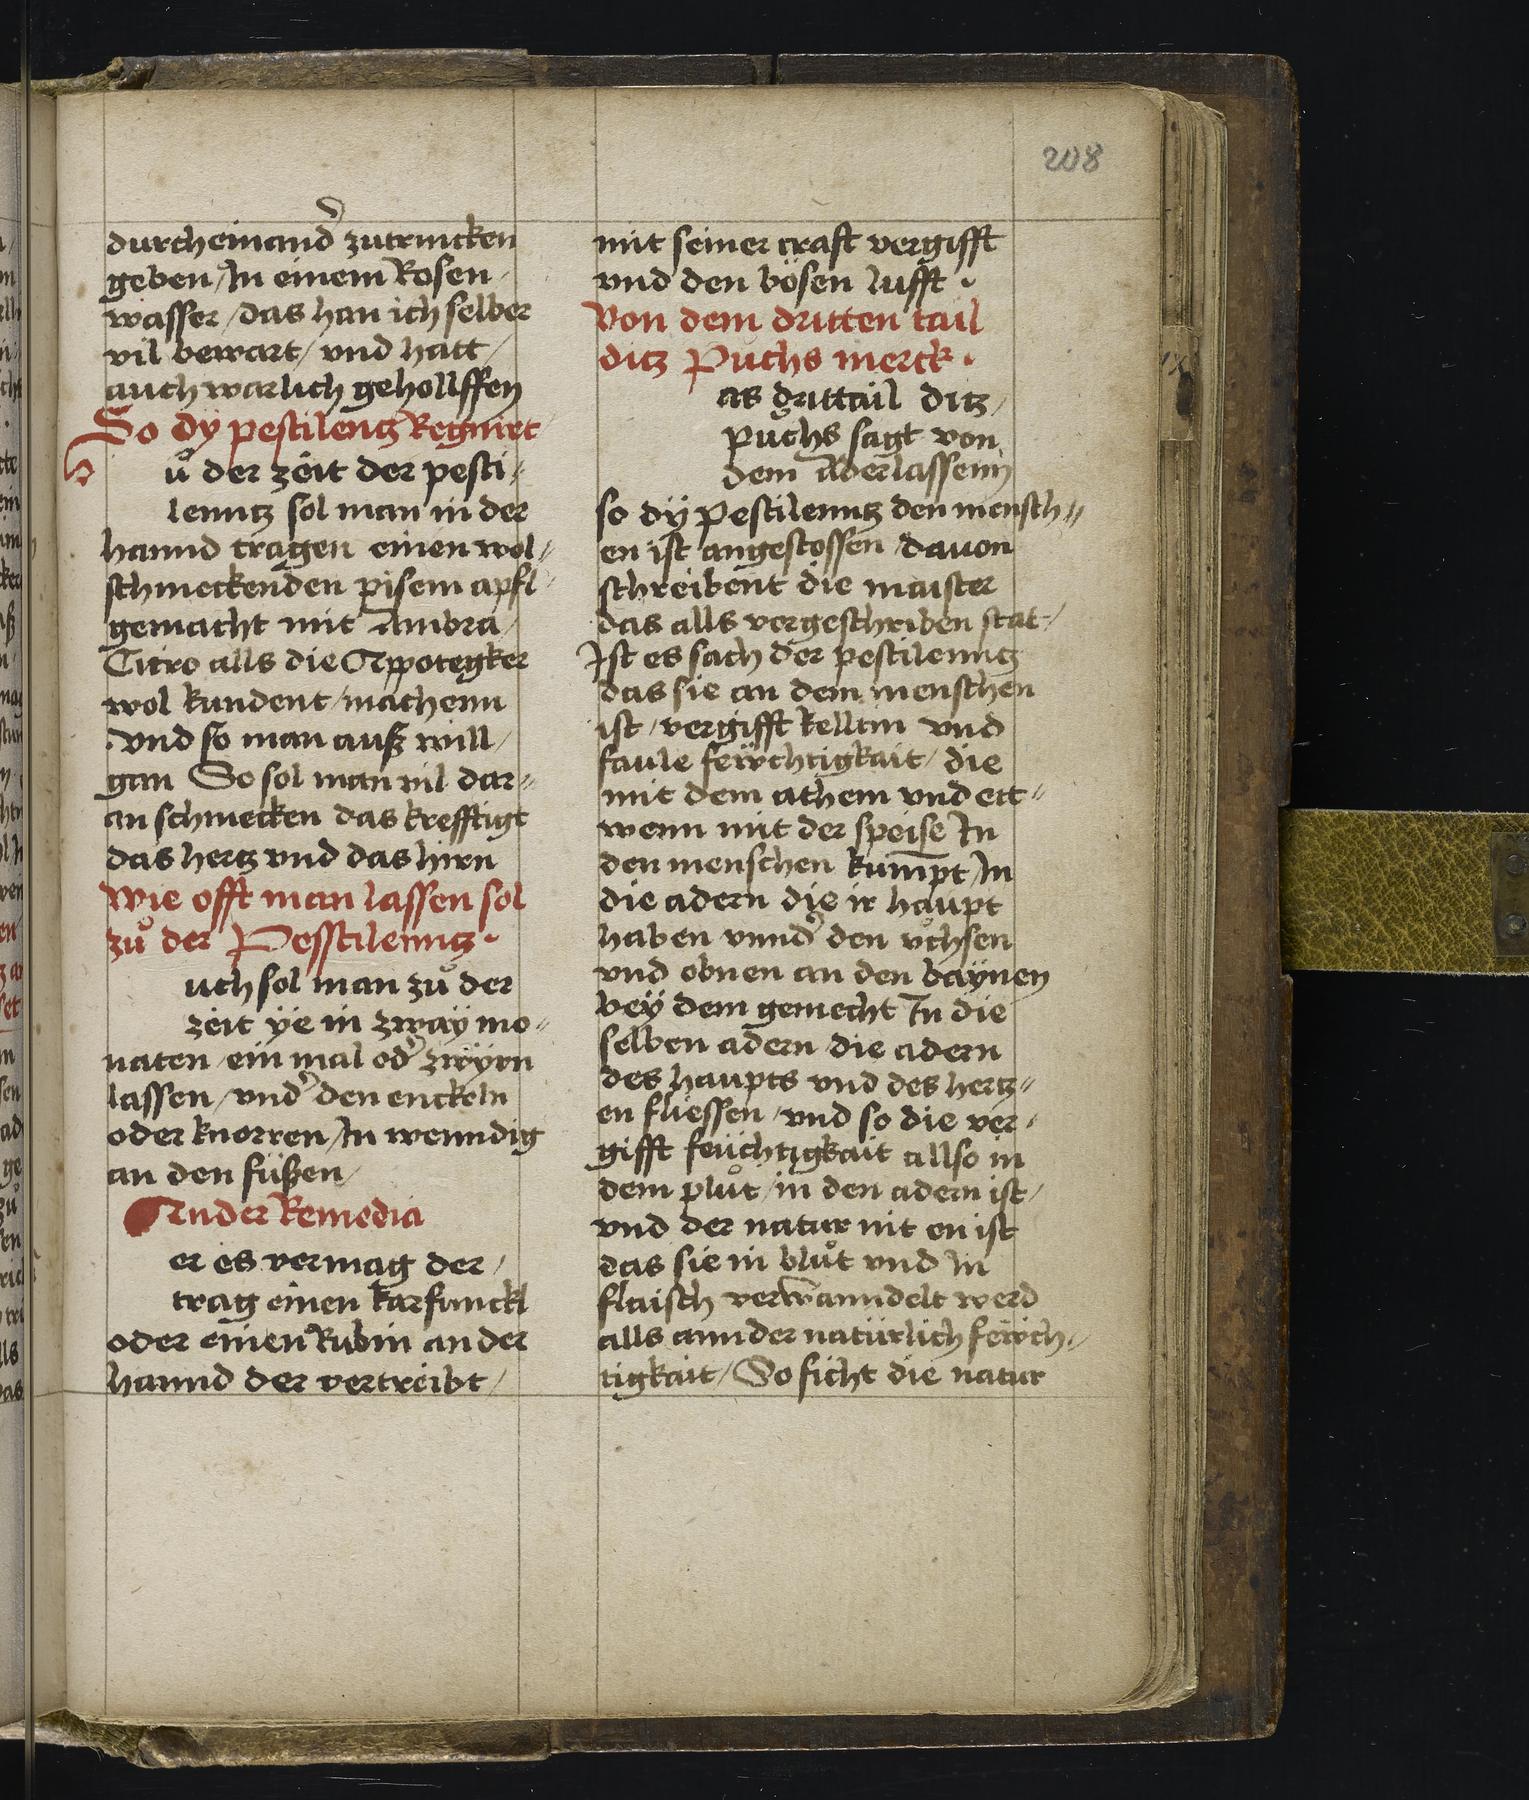 208
durcheinand̉ zutrincken
geben / In einem Rosen /
wasser / das han ich selber
vil bewart / vnd hatt /
auch warlich gehollffen
So dy pestilentz Regnirt
ů der zeit der pesti //
lenntz sol man in der
hannd tragen einen wol //
schmeckenden pisem apfl
gemacht mit Ambra /
Citro alls die Appotegker
wol kundent / machenn
· vnd so man auß will /
gan So sol man vil dar //
an schmecken das krefftigt
das hertz vnd das hirn
Wie offt man lassen sol
zů der Pesstilenntz ·
uch sol man zů der
zeit ÿe in zwaÿ mo //
naten / ein mal od̉ zwÿrn
lassen / vnd̉ den enckeln
oder knorren / In wenndig
an den füßen /
Ander Remedia
er es vermag der /
trag einen karfunckl
oder einen Rubin an der
hannd der vertreibt /
mit seiner craft vergifft
vnd den bösen lufft ·
Von dem dritten tail
ditz Půchs merck ·
as drittail ditz /
půchs sagt von
dem Aderlassenn
so dÿ pestilenntz den mensch //
en ist angestossen / dauon
schreibent die maister
das alls vorgeschriben stat /
Ist es sach der pestilenntz
das sie an dem menschen
ist / vergifft kelltin vnd
faule feẅchtigkait / die
mit dem athem vnd ett //
wenn mit der speise In
den menschen kumpt / In
die adern die ir haupt
haben vnnd̉ den vͦchsen
vnd obnen an den baÿnen
beÿ dem gemecht In die
selben adern / die adern
des haupts vnd des hertz //
en fliessen / vnd so die ver /
gifft feüchtigkait allso in
dem plůt / in den adern ist /
vnd der natur nit en ist
das sie in blůt vnd In
flaisch verwanndelt werd
alls ann der natürlich feẅch /
tigkait / So ficht die natur